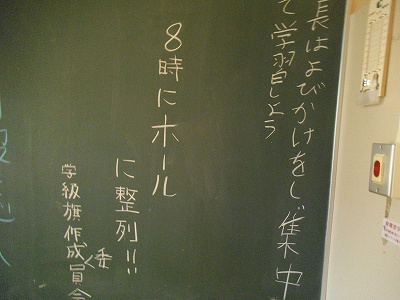 長はよびかけをし、集中
て学習しよう
8時にホール
に整列!!
学級旗作成員会
委